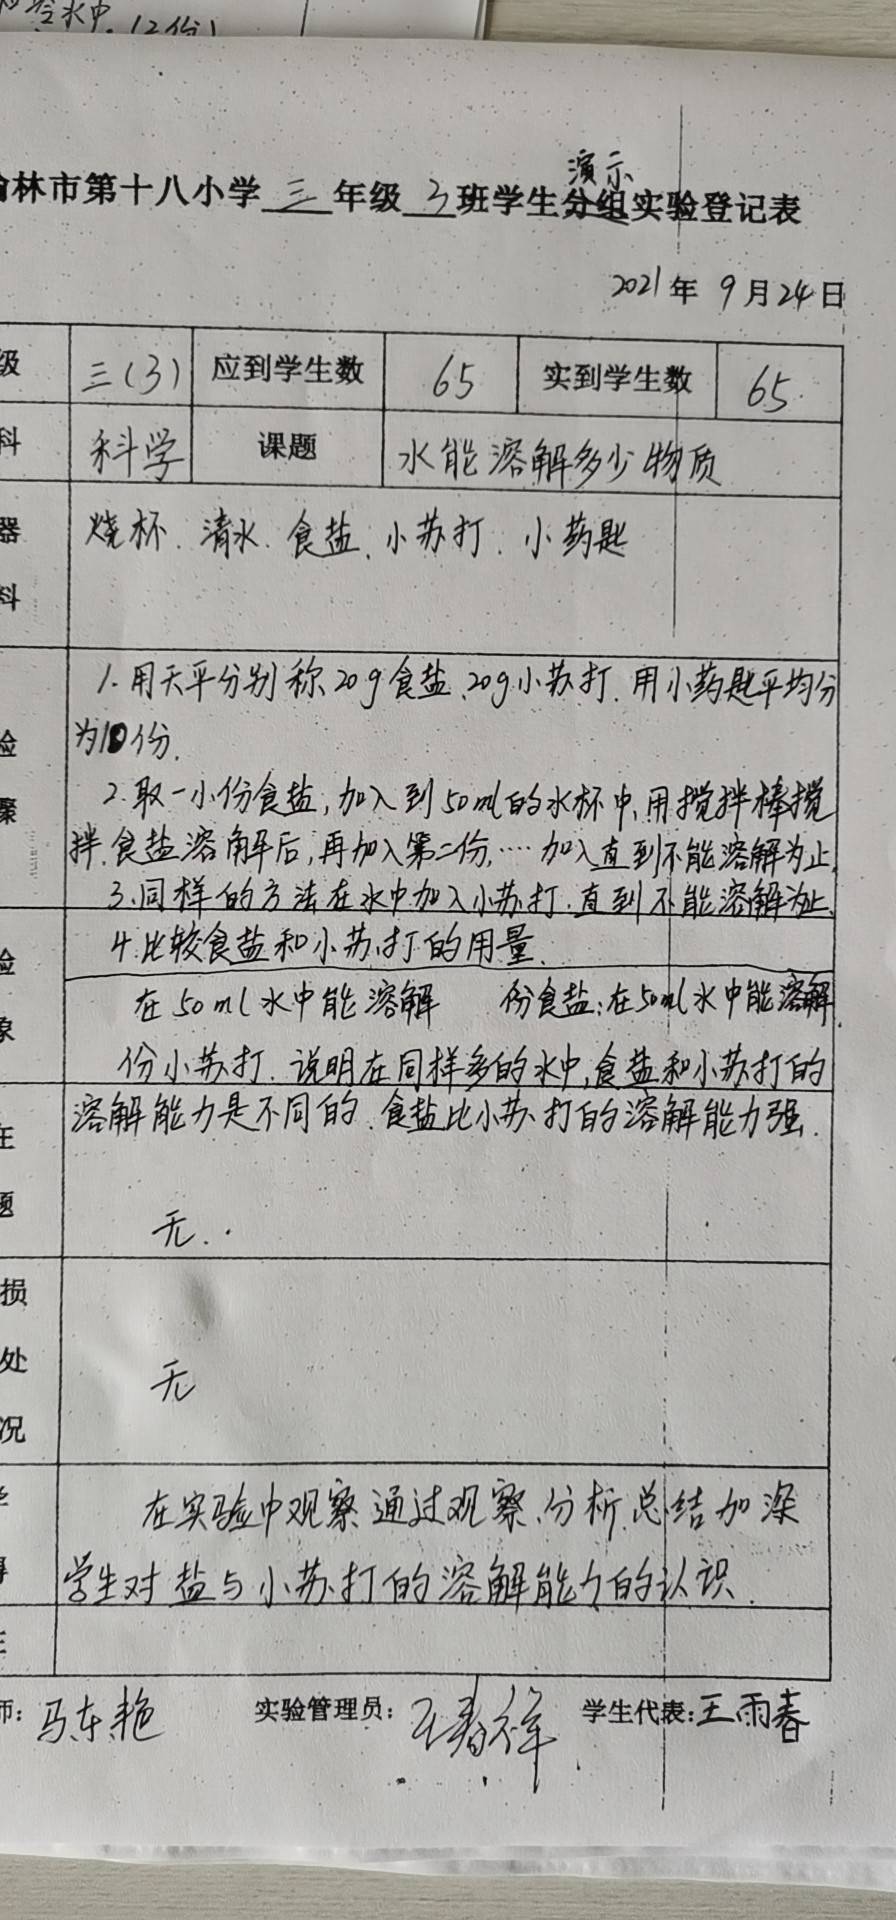 冷水中.(2份)
演示
榆林市第十八小学三年级3班学生分组实验登记表
2021年9月24日
级 三(3) 应到学生数 65 实到学生数 65
科 科学 课题 水能溶解多少物质
器 烧杯、清水、食盐、小苏打、小药匙
料
1.用天平分别称20g食盐、20g小苏打.用小药匙平均分
为10份.
验
2.取一小份食盐,加入到50ml的水杯中,用搅拌棒搅
骤
拌.食盐溶解后,再加入第二份,…加入直到不能溶解为止.
3.同样的方法在水中加入小苏打.直到不能溶解为止.
验 4.比较食盐和小苏打的用量.
在50ml水中能溶解 份食盐;在50ml水中能溶解
象
份小苏打.说明在同样多的水中,食盐和小苏打的
溶解能力是不同的.食盐比小苏打的溶解能力强.
在
题 无..
损
处 无
况
在实验中观察通过观察、分析、总结加深
学生对盐与小苏打的溶解能力的认识.
师:马东艳 实验管理员:王春祥 学生代表:王雨春